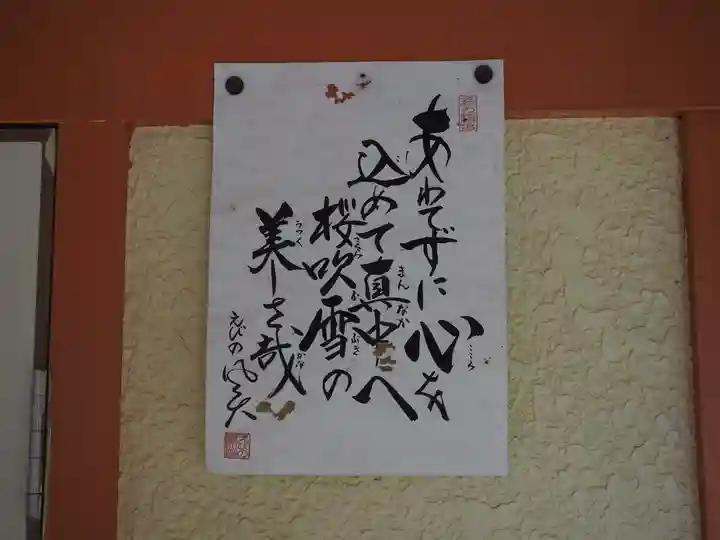 あわてずに心を
込めて真中へ
桜吹雪の
美しさ哉
えびの